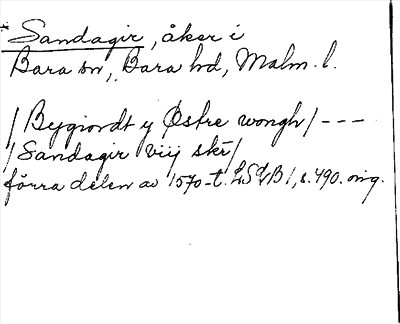 * Sandagir, åker i
Bara sn, Bara hd, Malm. l.
/Bygiordt y Østre wongh/ ---
/Sandagir viij skr/
förra delen av 1570-t. LSQB 1, s. 490. orig.